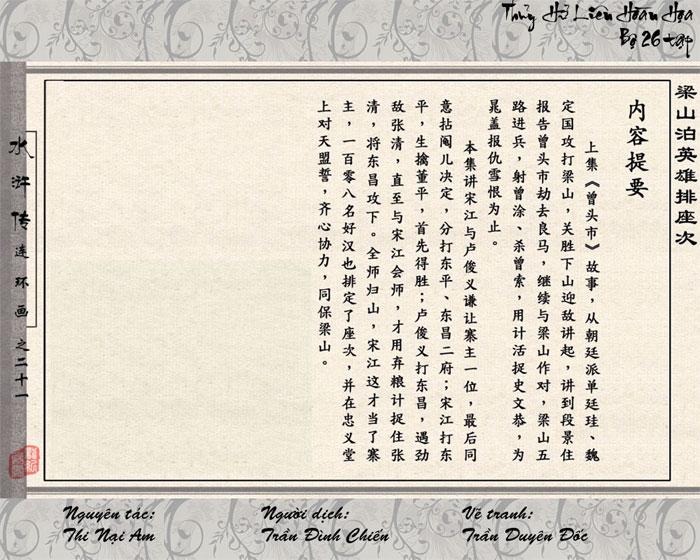 Thủy Hử Liên Hoàn Họa
Bộ 26 tập
梁山泊英雄排座次
内容提要
上集《曾头市》故事，从朝廷派单廷珪、魏
定国攻打梁山，关胜下山迎敌讲起，讲到段景住
报告曾头市劫去良马，继续与梁山作对，梁山五
路进兵，射曾涂、杀曾索，用计活捉史文恭，为
晁盖报仇雪恨为止。
本集讲宋江与卢俊义谦让寨主一位，最后同
意拈阄儿决定，分打东平、东昌二府；宋江打东
平，生擒董平，首先得胜；卢俊义打东昌，遇劲
敌张清，直至与宋江会师，才用弃粮计捉住张
清，将东昌攻下。全师归山，宋江这才当了寨
主，一百零八名好汉也排定了座次，并在忠义堂
上对天盟誓，齐心协力，同保梁山。
水浒传连环画之二十一
Nguyên tác:
Thi Nại Am
Người dịch:
Trần Đình Chiến
Vẽ tranh:
Trần Duyên Đốc